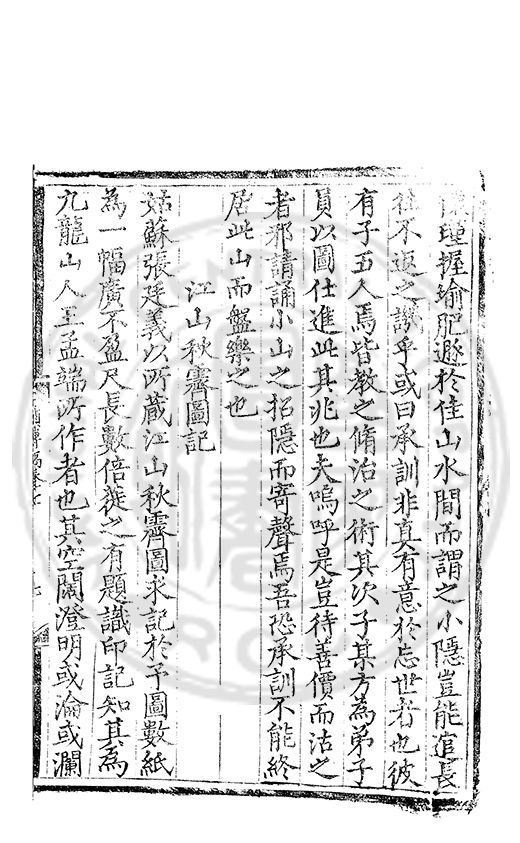 懷瑾握瑜肥遯於佳山水間而謂之小隱豈能逭長
往不返之譏乎或曰承訓非真有意於忘世者也彼
有子五人焉皆教之脩治之術其次子某方為弟子
員以圖仕進此其兆也夫嗚呼是豈待善價而沽之
者邪請誦小山之招隱而寄聲焉吾恐承訓不能終
居此山而盤樂之也
江山秋霽圖記
姑蘇張廷義以所藏江山秋霽圖求記於予圖數紙
為一幅廣不盈尺長數倍蓰之有題識印記知其為
九龍山人王孟端所作者也其空闊澄明或淪或瀾